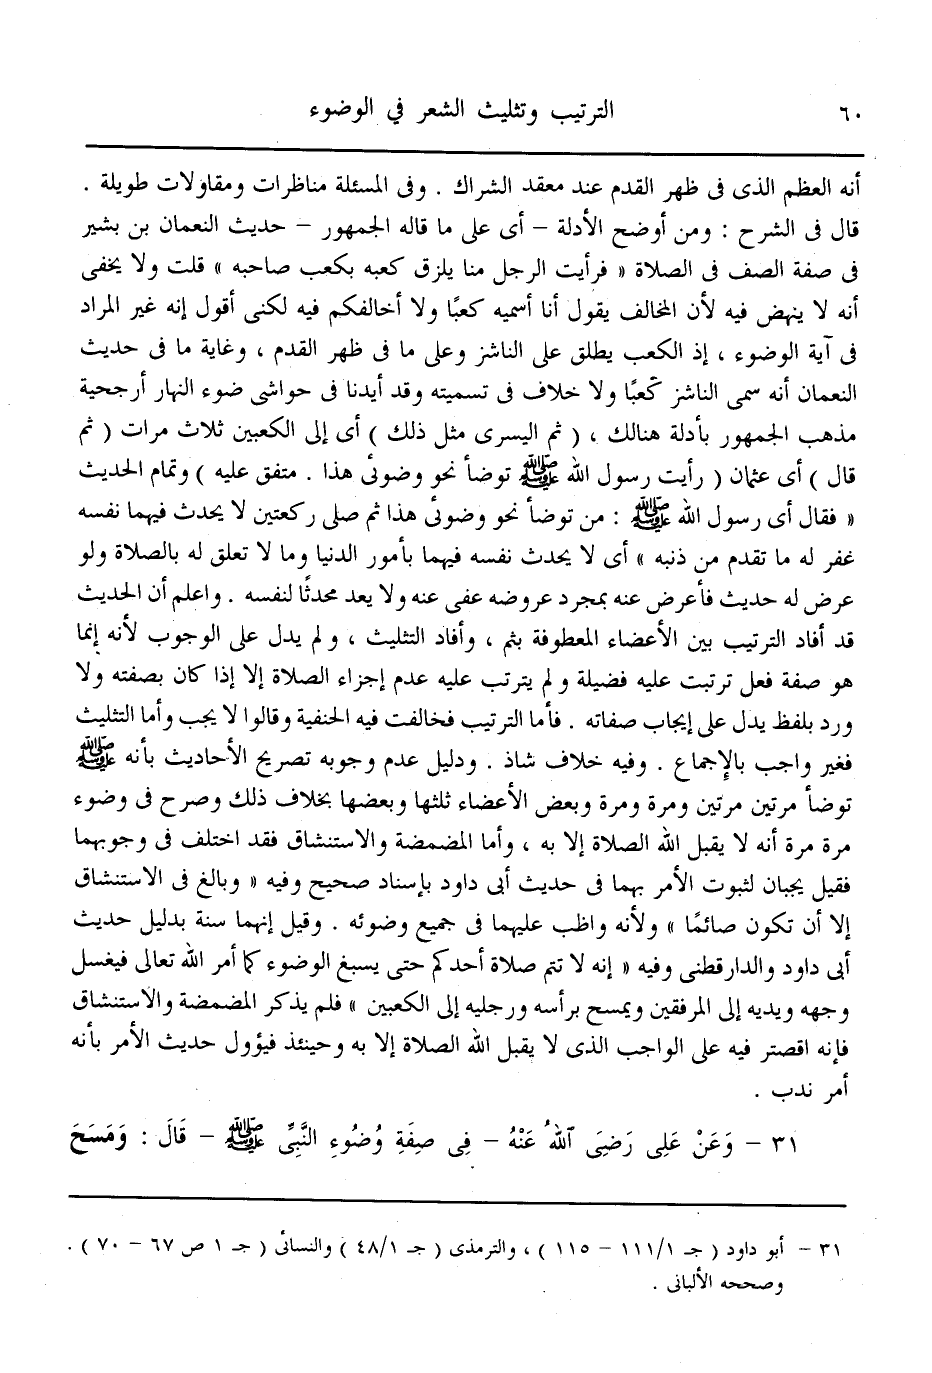 ٦٠
الترتيب وتثليث الشعر في الوضوء
أنه العظم الذى فى ظهر القدم عند معقد الشراك . وفى المسئلة مناظرات ومقاولات طويلة .
قال فى الشرح : ومن أوضح الأدلة – أى على ما قاله الجمهور – حديث النعمان بن بشير
فى صفة الصف فى الصلاة « فرأيت الرجل منا يلزق كعبه بكعب صاحبه » قلت ولا يخفى
أنه لا ينهض فيه لأن المخالف يقول أنا أسميه كعبًا ولا أخالفكم فيه لكنى أقول إنه غير المراد
فى آية الوضوء ، إذ الكعب يطلق على الناشز وعلى ما فى ظهر القدم ، وغاية ما فى حديث
النعمان أنه سمى الناشز كعبًا ولا خلاف فى تسميته وقد أيدنا فى حواشى ضوء النهار أرجحية
مذهب الجمهور بأدلة هنالك ، ( ثم اليسرى مثل ذلك ) أى إلى الكعبين ثلاث مرات ( ثم
قال ) أى عثمان ( رأيت رسول الله ﷺ توضأ نحو وضوئى هذا . متفق عليه ) وتمام الحديث
« فقال أى رسول الله ﷺ : من توضأ نحو وضوئى هذا ثم صلى ركعتين لا يحدث فيهما نفسه
غفر له ما تقدم من ذنبه » أى لا يحدث نفسه فيهما بأمور الدنيا وما لا تعلق له بالصلاة ولو
عرض له حديث فأعرض عنه بمجرد عروضه عفى عنه ولا يعد محدثًا لنفسه . واعلم أن الحديث
قد أفاد الترتيب بين الأعضاء المعطوفة بثم ، وأفاد التثليث ، ولم يدل على الوجوب لأنه إنما
هو صفة فعل ترتبت عليه فضيلة ولم يترتب عليه عدم إجزاء الصلاة إلا إذا كان بصفته ولا
ورد بلفظ يدل على إيجاب صفاته . فأما الترتيب فخالفت فيه الحنفية وقالوا لا يجب وأما التثليث
فغير واجب بالإجماع . وفيه خلاف شاذ . ودليل عدم وجوبه تصريح الأحاديث بأنه ﷺ
توضأ مرتين مرتين ومرة ومرة وبعض الأعضاء ثلثها وبعضها بخلاف ذلك وصرح فى وضوء
مرة مرة أنه لا يقبل الله الصلاة إلا به ، وأما المضمضة والاستنشاق فقد اختلف فى وجوبهما
فقيل يجبان لثبوت الأمر بهما فى حديث أبى داود بإسناد صحيح وفيه « وبالغ فى الاستنشاق
إلا أن تكون صائمًا » ولأنه واظب عليهما فى جميع وضوئه . وقيل إنهما سنة بدليل حديث
أبى داود والدارقطنى وفيه « إنه لا تتم صلاة أحدكم حتى يسبغ الوضوء كما أمر الله تعالى فيغسل
وجهه ويديه إلى المرفقين ويمسح برأسه ورجليه إلى الكعبين » فلم يذكر المضمضة والاستنشاق
فإنه اقصتر فيه على الواجب الذى لا يقبل الله الصلاة إلا به وحينئذ فيؤول حديث الأمر بأنه
أمر ندب .
٣١ – وَعَنْ عَلِى رَضِىَ اللهُ عَنْهُ – فِى صِفَةِ وُضُوءِ النَّبِىِّ ﷺ – قَالَ : وَمَسَحَ
٣١ – أبو داود ( جـ ١١١/١ – ١١٥ ) ، والترمذى ( جـ ٤٨/١ ) والنسائى ( جـ ١ ص ٦٧ – ٧٠ ) .
وصححه الألبانى .